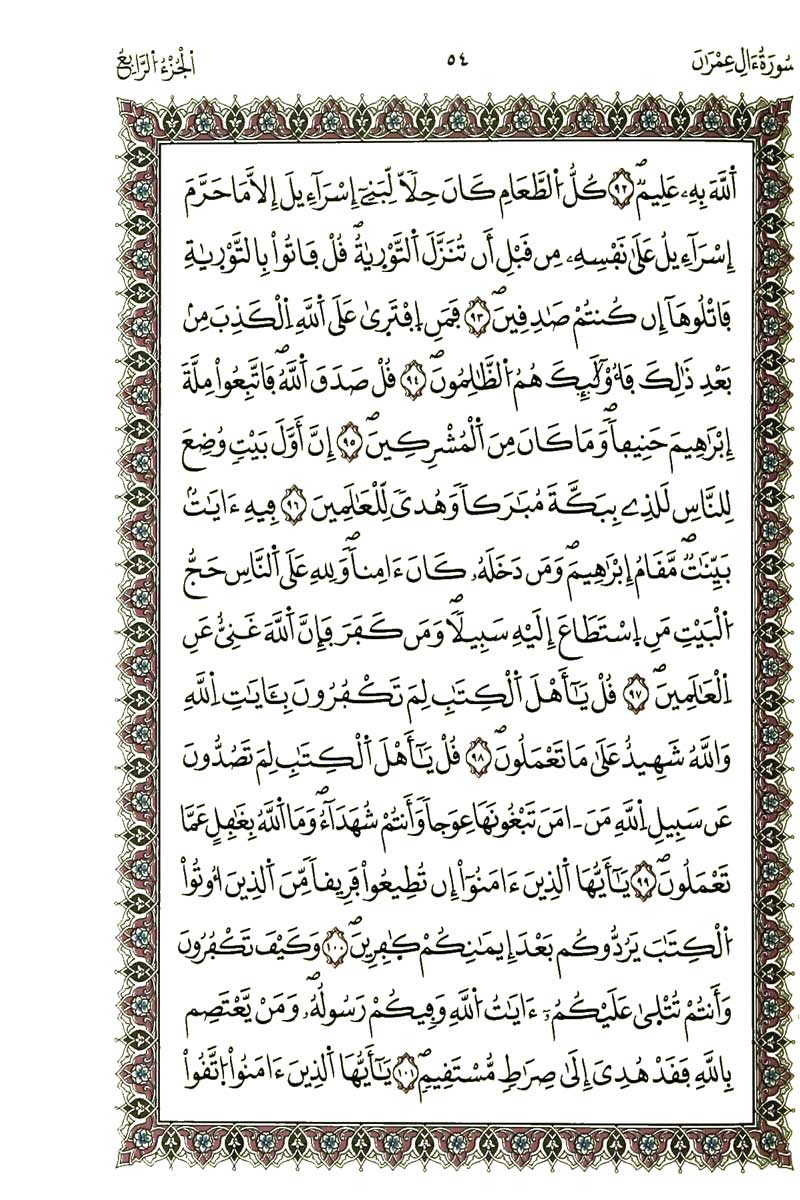 سُورَةُ ءَالِ عِمْرَٰنَ
٥٤
اَلْجُزْءُ اَلرَّابِعُ
اَللَّهَ بِهِۦ عَلِيمٌۖ ٩٢ كُلُّ اُ۬لطَّعَامِ كَانَ حِلّاٗ لِّبَنِےٓ إِسْرَآءِيلَ إِلاَّ مَا حَرَّمَ
إِسْرَآءِيلُ عَلَىٰ نَفْسِهِۦ مِن قَبْلِ أَن تُنَزَّلَ اَ۬لتَّوْرَيٰةُۖ قُلْ فَاتُواْ بِالتَّوْرَيٰةِ
فَاتْلُوهَآ إِن كُنتُمْ صَٰدِقِينَۖ ٩٣ فَمَنِ اِ۪فْتَر۪يٰ عَلَى اَ۬للَّهِ اِ۬لْكَذِبَ مِنۢ
بَعْدِ ذَٰلِكَ فَأُوْلَٰٓئِكَ هُمُ اُ۬لظَّٰلِمُونَۖ ٩٤ قُلْ صَدَقَ اَ۬للَّهُۖ فَاتَّبِعُواْ مِلَّةَ
إِبْرَٰهِيمَ حَنِيفاٗۖ وَمَا كَانَ مِنَ اَ۬لْمُشْرِكِينَۖ ٩٥ إِنَّ أَوَّلَ بَيْتٖ وُضِعَ
لِلنَّاسِ لَلذِے بِبَكَّةَ مُبَٰرَكاٗ وَهُديٗ لِّلْعَٰلَمِينَ ٩٦ فِيهِ ءَايَٰتُۢ
بَيِّنَٰتٞۖ مَّقَامُ إِبْرَٰهِيمَۖ وَمَن دَخَلَهُۥ كَانَ ءَامِناٗۖ وَلِلهِ عَلَى اَ۬لنَّاسِ حَجُّ
اُ۬لْبَيْتِ مَنِ اِ۪سْتَطَاعَ إِلَيْهِ سَبِيلاٗۖ وَمَن كَفَرَ فَإِنَّ اَ۬للَّهَ غَنِيٌّ عَنِ
اِ۬لْعَٰلَمِينَۖ ٩٧ قُلْ يَٰٓأَهْلَ اَ۬لْكِتَٰبِ لِمَ تَكْفُرُونَ بِـَٔايَٰتِ اِ۬للَّهِ
وَاللَّهُ شَهِيدٌ عَلَىٰ مَا تَعْمَلُونَۖ ٩٨ قُلْ يَٰٓأَهْلَ اَ۬لْكِتَٰبِ لِمَ تَصُدُّونَ
عَن سَبِيلِ اِ۬للَّهِ مَنَ اٰمَنَ تَبْغُونَهَا عِوَجاٗ وَأَنتُمْ شُهَدَآءُۖ وَمَا اَ۬للَّهُ بِغَٰفِلٍ عَمَّا
تَعْمَلُونَۖ ٩٩ يَٰٓأَيُّهَا اَ۬لذِينَ ءَامَنُوٓاْ إِن تُطِيعُواْ فَرِيقاٗ مِّنَ اَ۬لذِينَ أُوتُواْ
اُ۬لْكِتَٰبَ يَرُدُّوكُم بَعْدَ إِيمَٰنِكُمْ كٰ۪فِرِينَۖ ١٠٠ وَكَيْفَ تَكْفُرُونَ
وَأَنتُمْ تُتْل۪يٰ عَلَيْكُمُۥٓ ءَايَٰتُ اُ۬للَّهِ وَفِيكُمْ رَسُولُهُۥۖ وَمَنْ يَّعْتَصِم
بِاللَّهِ فَقَدْ هُدِيَ إِلَىٰ صِرَٰطٖ مُّسْتَقِيمٖۖ ١٠١ يَٰٓأَيُّهَا اَ۬لذِينَ ءَامَنُواْ اُ۪تَّقُواْ